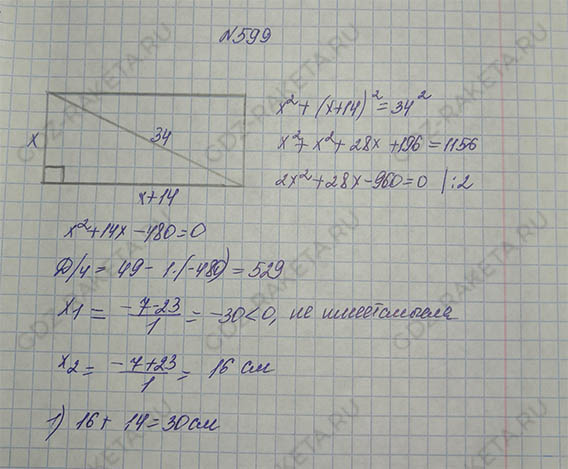 N599
x² + (x+14)² = 34²
x
34
x² + x² + 28x + 196 = 1156
2x² + 28x - 960 = 0 | :2
x+14
x² + 14x - 480 = 0
D/4 = 49 - 1·(-480) = 529
x1 = -7-23/1 = -30 < 0, не имеет смысла
x2 = -7+23/1 = 16 см
1) 16 + 14 = 30 см
GDZ-RAKETA.RU